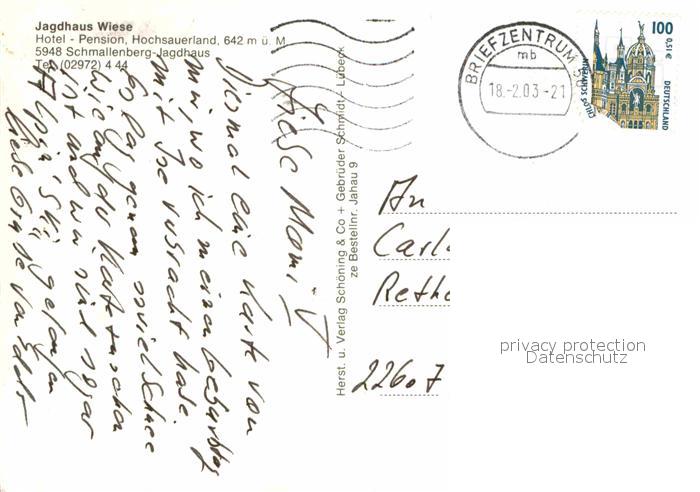 Jagdhaus Wiese
Hotel - Pension, Hochsauerland, 642 m ü. M
5948 Schmallenberg-Jagdhaus
Tel. (02972) 4 44
Liebe Mami!
Diesmal eine Karte von
mir, wo ich meinen Geburtstag
mit Ise verbracht habe.
Es lag genau soviel Schnee
wie auf der Karte zu sehen
ist und wir sind sogar
Ski gelaufen
Liebe Grüße von
Herst. u. Verlag Schöning & Co + Gebrüder Schmidt - Lübeck
ze Bestellnr. Jahau 9
BRIEFZENTRUM
mb
18.-2.03-21
100
0,51 €
DEUTSCHLAND
SCHLOSS SCHWERIN
An
Carl
Reth
22607
privacy protection
Datenschutz